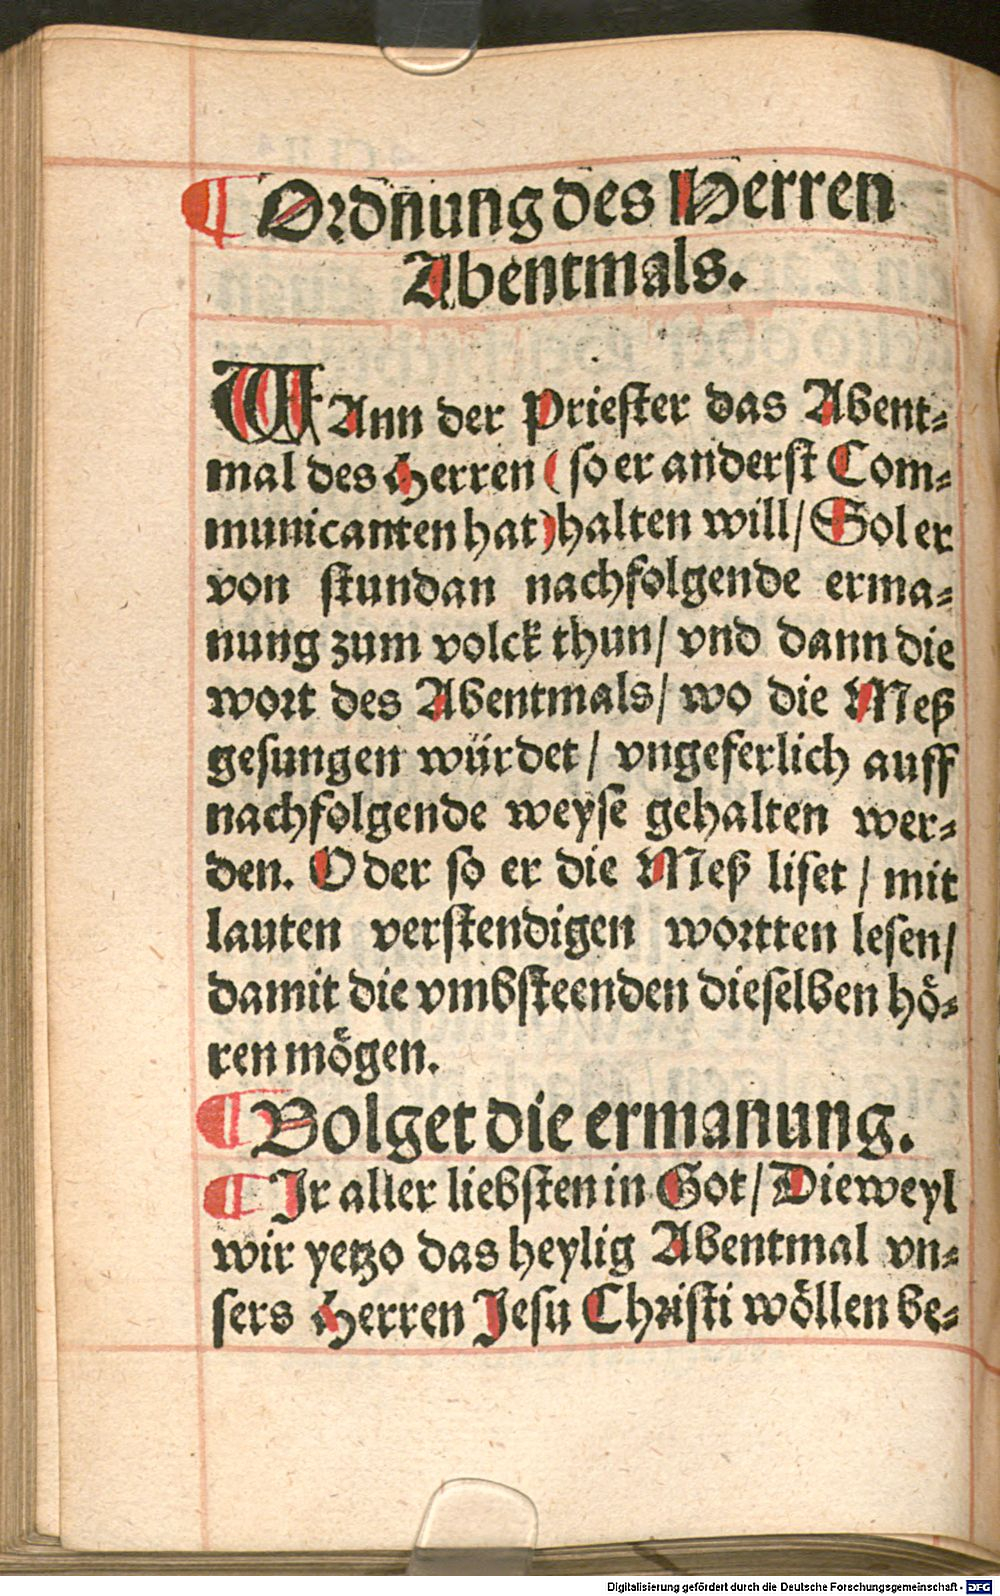 ¶ Ordnung des Herren
Abentmals.
WAnn der Priester das Abent⸗
mal des Herren (so er anderst Com⸗
municanten hat) halten will/ Sol er
von stundan nachfolgende erma⸗
nung zum volck thun/ vnd dann die
wort des Abentmals/ wo die Meß
gesungen würdet/ vngeferlich auff
nachfolgende weyse gehalten wer⸗
den. Oder so er die Meß liset/ mit
lauten verstendigen wortten lesen/
damit die vmbsteenden dieselben hö⸗
ren mögen.
¶ Volget die ermanung.
¶ Ir aller liebsten in Got/ Dieweyl
wir yetzo das heylig Abentmal vn⸗
sers Herren Jesu Christi wöllen be⸗
Digitalisierung gefördert durch die Deutsche Forschungsgemeinschaft - DFG